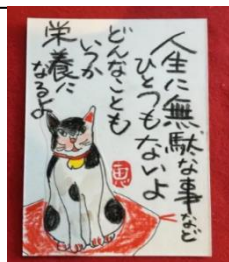 人生に無駄な事など
ひとつもないよ
どんなことも
いつか
栄養に
なるよ
恵